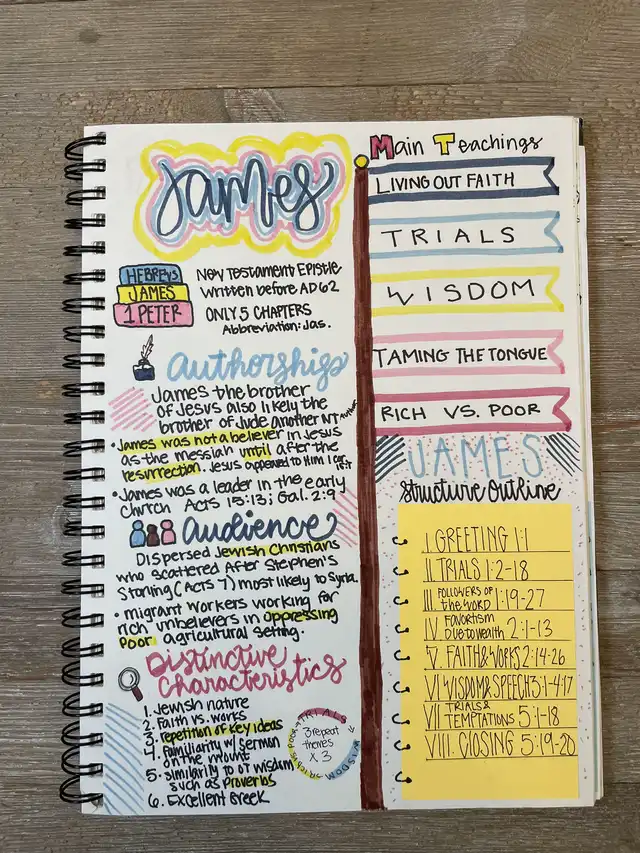 James
HEBREWS
JAMES
1 PETER
New Testament Epistle
written before AD 62
ONLY 5 CHAPTERS
Abbreviation: Jas.
Authorship
James the brother
of Jesus also likely the
brother of Jude another NT author
• James was not a believer in Jesus
as the messiah until after the
resurrection. Jesus appeared to Him 1 Cor.
15:7
• James was a leader in the early
church Acts 15:13; Gal. 2:9
audience
Dispersed Jewish Christians
who scattered After Stephen's
Stoning (ACTS 7) most likely to Syria.
• migrant workers working for
rich unbelievers in oppressing
poor agricultural setting.
Distinctive
Characteristics
1. Jewish nature
2. Faith vs. works
3. repetition of key ideas
4. Familiarity w/ sermon
on the mount
5. similarity to OT wisdom
such as Proverbs
6. Excellent Greek
TRIALS
WISDOM
RICH VS POOR
3 repeat
themes
X 3
Main Teachings
LIVING OUT FAITH
TRIALS
WISDOM
TAMING THE TONGUE
RICH VS. POOR
JAMES
Structure Outline
I GREETING 1:1
II TRIALS 1:2-18
III FOLLOWERS OF
the WORD 1:19-27
IV Favoritism
Due to wealth 2:1-13
V. FAITH & WORKS 2:14-26
VI WISDOM & SPEECH 3:1-4:17
VII TRIALS &
TEMPTATIONS 5:1-18
VIII. CLOSING 5:19-20